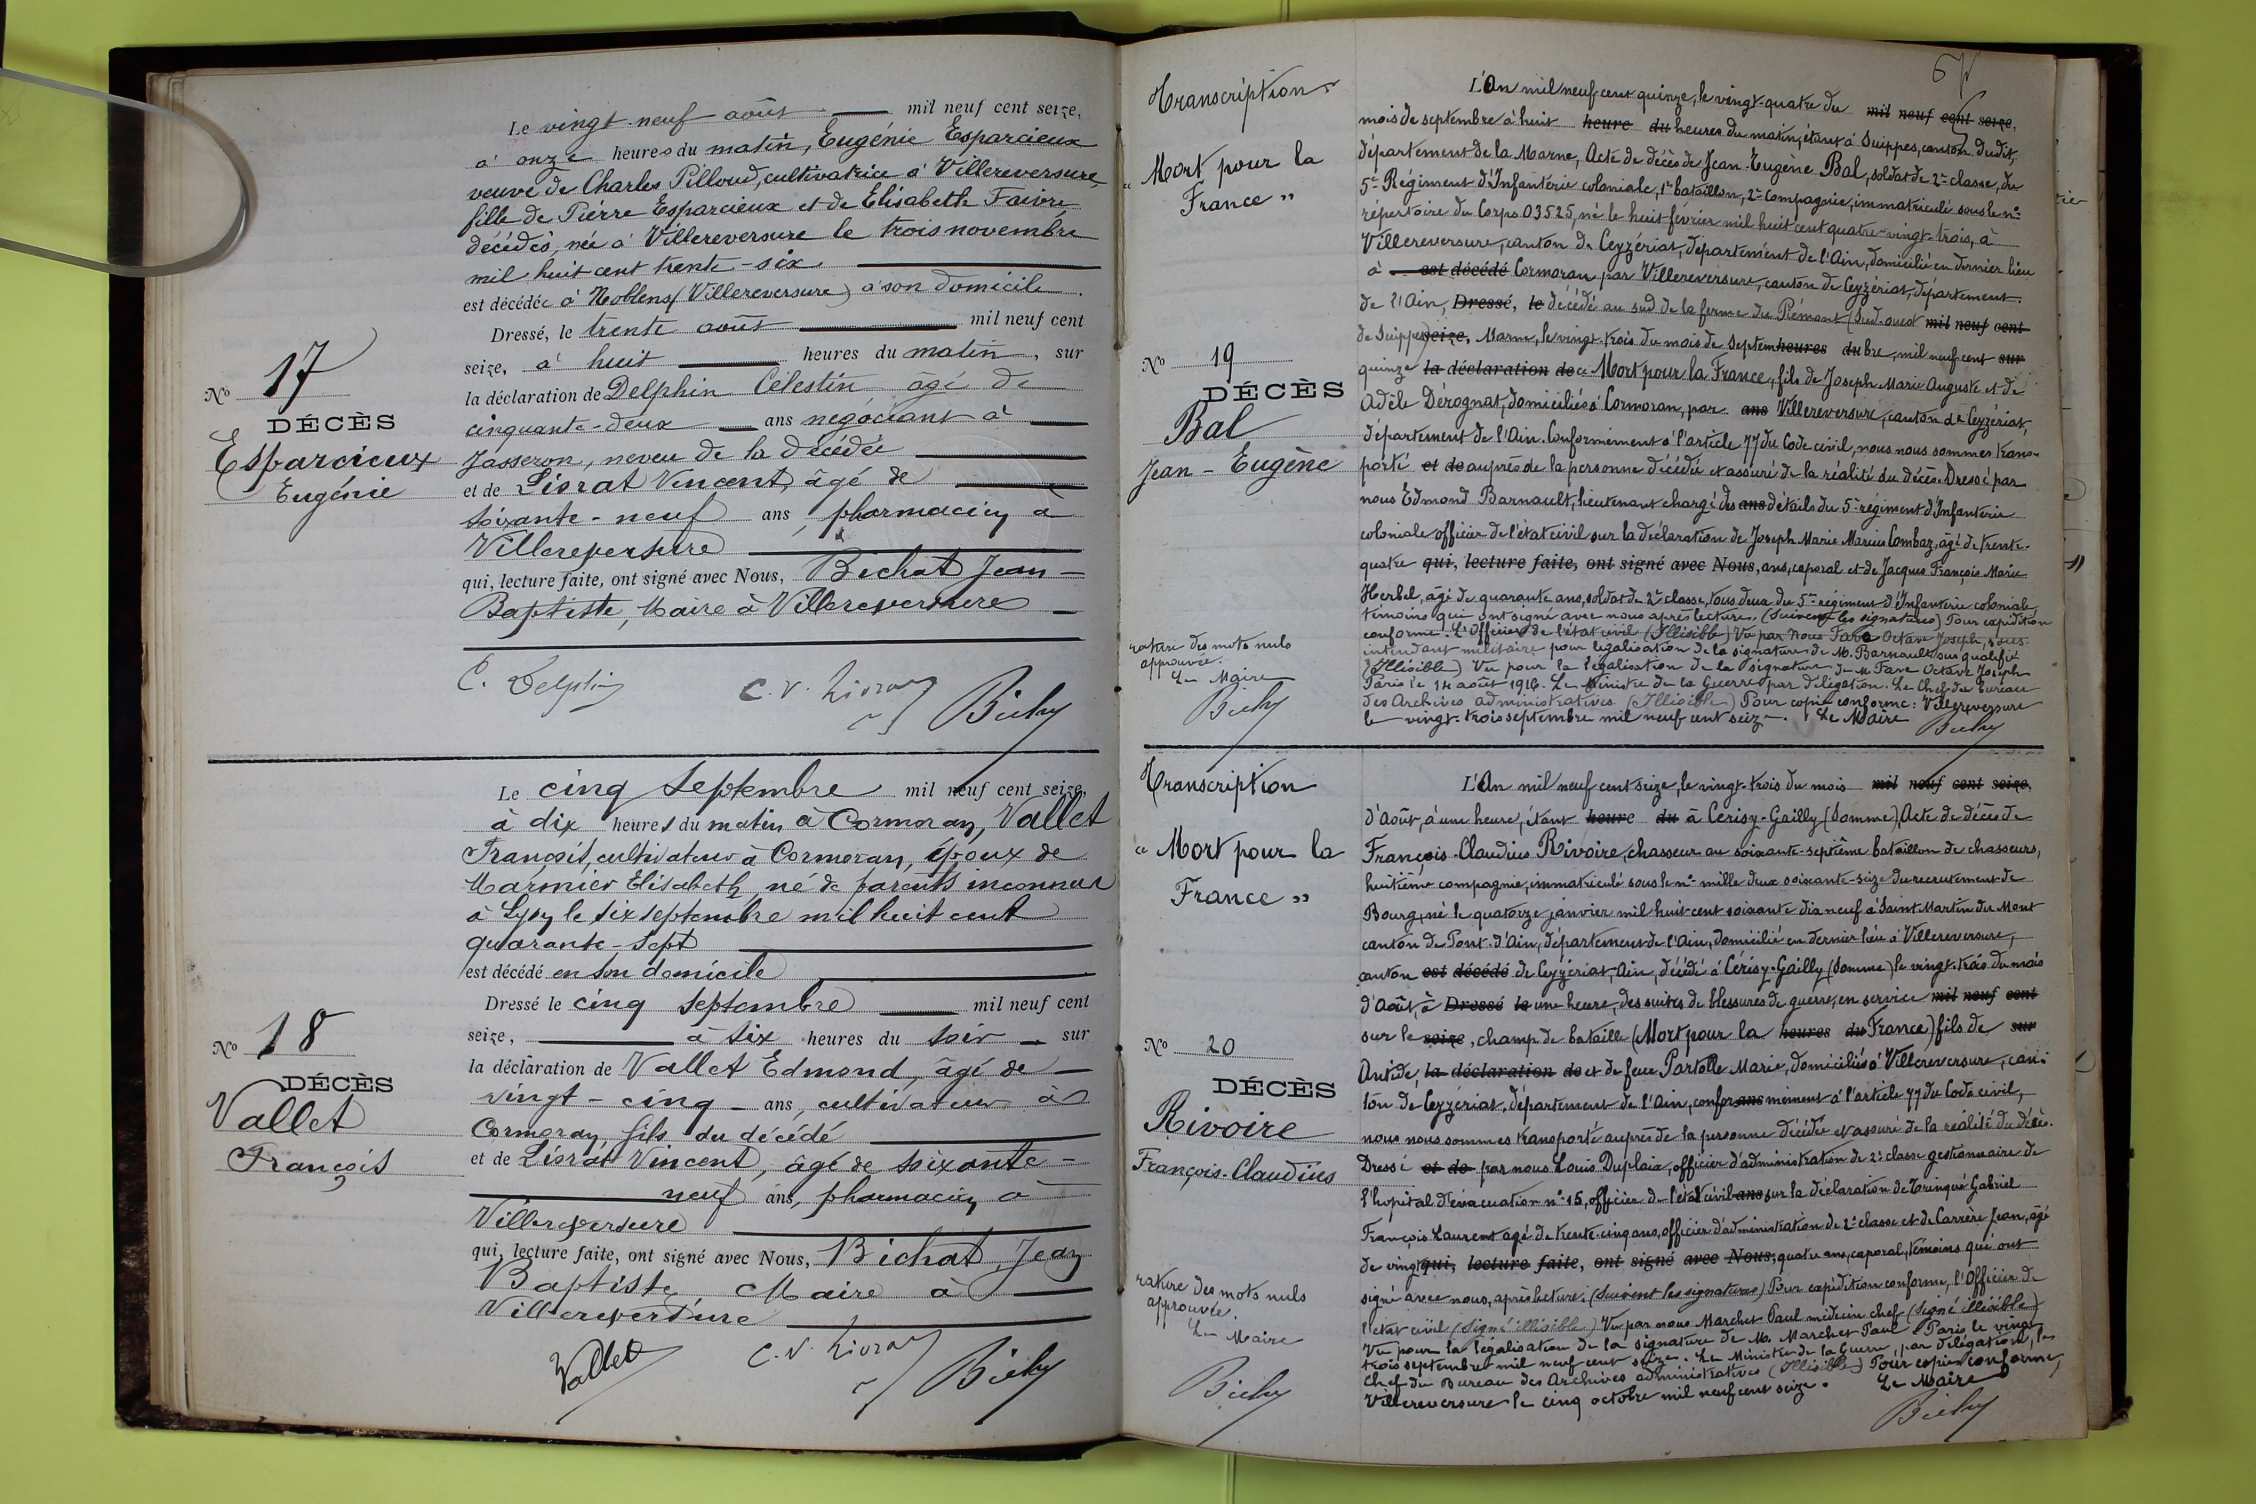 Le vingt-neuf août mil neuf cent seize,
à onze heures du matin, Eugénie Esparcieux
veuve de Charles Pilloud, cultivatrice à Villereversure,
fille de Pierre Esparcieux et de Elisabeth Faivre
décédés, née à Villereversure le trois novembre
mil huit cent trente-six
est décédée à Noblens (Villereversure) à son domicile.
Dressé, le trente août mil neuf cent
seize, à huit heures du matin, sur
la déclaration de Delphin Célestin âgé de
cinquante-deux ans négociant à
Jasseron, neveu de la décédée
et de Livrat Vincent, âgé de
soixante-neuf ans, pharmacien à
Villereversure
qui, lecture faite, ont signé avec Nous, Bichat Jean-
Baptiste, Maire à Villereversure
C. Delphin C. V. Livrat Bichat
No 17
DÉCÈS
Esparcieux
Eugénie
Le cinq Septembre mil neuf cent seize,
à dix heures du matin à Cormoran, Vallet
François, cultivateur à Cormoran, époux de
Marmier Elisabeth, né de parents inconnus
à Lyon le six septembre mil huit cent
quarante-sept
est décédé en son domicile
Dressé le cinq septembre mil neuf cent
seize, à six heures du soir sur
la déclaration de Vallet Edmond, âgé de
vingt-cinq ans, cultivateur à
Cormoran, fils du décédé
et de Livrat Vincent, âgé de soixante-
neuf ans, pharmacien à
Villereversure
qui, lecture faite, ont signé avec Nous, Bichat Jean
Baptiste, Maire à
Villereversure
Vallet C. V. Livrat Bichat
No 18
DÉCÈS
Vallet
François
Transcription
"Mort pour la
France"
No 19
DÉCÈS
Bal
Jean-Eugène
rature des mots nuls
approuvée.
Le Maire
Bichat
L'An mil neuf cent quinze, le vingt-quatre du mil neuf cent seize,
mois de septembre à huit heure du heures du matin, étant à Suippes, canton dudit,
département de la Marne, Acte de décès de Jean-Eugène Bal, soldat de 2e classe, du
5e Régiment d'Infanterie coloniale, 1er bataillon, 2e compagnie, immatriculé sous le no
répertoire du Corps 03525, né le huit février mil huit cent quatre-vingt-trois, à
Villereversure, canton de Ceyzériat, département de l'Ain, domicilié en dernier lieu
à est décédé Cormoran par Villereversure, canton de Ceyzériat, département
de l'Ain, Dressé, le décédé au sud de la ferme du Piémont (Sud-ouest mil neuf cent
de Suippes) seize, Marne, le vingt-trois du mois de Septem heures du bre, mil neuf cent sur
quinze la déclaration de "Mort pour la France", fils de Joseph Marie Auguste et de
Adèle Dérognat, domiciliés à Cormoran, par ans Villereversure, canton de Ceyzériat,
département de l'Ain. Conformément à l'article 77 du Code civil, nous nous sommes trans-
porté et de auprès de la personne décédée et assuré de la réalité du décès. Dressé par
nous Edmond Barnault, lieutenant chargé des ans détails du 5e régiment d'Infanterie
coloniale officier de l'état civil sur la déclaration de Joseph Marie Marius Combaz, âgé de trente-
quatre qui, lecture faite, ont signé avec Nous, ans, caporal et de Jacques François Marie
Herbel, âgé de quarante ans, soldat de 2e classe, tous deux du 5e régiment d'Infanterie coloniale,
témoins qui ont signé avec nous après lecture. (Suivent les signatures) Pour expédition
conforme. L'Officier de l'état civil (Illisible) Vu par Nous Fave Octave Joseph, sous-
intendant militaire pour légalisation de la signature de M. Barnault sus qualifié
(Illisible) Vu pour la légalisation de la signature de M. Fave Octave Joseph
Paris le 14 août 1916. Le Ministre de la Guerre par délégation. Le Chef du Bureau
des Archives administratives (Illisible) Pour copie conforme: Villereversure
le vingt-trois septembre mil neuf cent seize. Le Maire
Bichat
Transcription
"Mort pour la
France"
No 20
DÉCÈS
Rivoire
François-Claudius
rature des mots nuls
approuvée.
Le Maire
Bichat
L'An mil neuf cent seize, le vingt-trois du mois mil neuf cent seize,
d'Août, à une heure, étant heure du à Cerisy-Gailly (Somme), Acte de décès de
François-Claudius Rivoire, chasseur au soixante-septième bataillon de chasseurs,
huitième compagnie, immatriculé sous le no mille deux soixante-seize du recrutement de
Bourg, né le quatorze janvier mil huit cent soixante dix neuf à Saint Martin du Mont
canton de Pont-d'Ain, département de l'Ain, domicilié en dernier lieu à Villereversure,
canton est décédé de Ceyzériat, Ain, décédé à Cérisy-Gailly (Somme) le vingt-trois du mois
d'Août, à Dressé le une heure, des suites de blessures de guerre, en service mil neuf cent
sur le seize, champ de bataille (Mort pour la heures du France) fils de sur
Antide, la déclaration de et de feue Partolle Marie, domiciliés à Villereversure, can-
ton de Ceyzériat, département de l'Ain, confor ans mément à l'article 77 du Code civil,
nous nous sommes transporté auprès de la personne décédée et assuré de la réalité du décès.
Dressé et de par nous Louis Duplaix, officier d'administration de 2e classe gestionnaire de
l'hopital d'évacuation no 15, officier de l'état civil ans sur la déclaration de Trinqué Gabriel
François Laurent âgé de trente-cinq ans, officier d'administration de 2e classe et de Carrère Jean, âgé
de vingt qui, lecture faite, ont signé avec Nous, quatre ans, caporal, témoins qui ont
signé avec nous, après lecture. (Suivent les signatures) Pour expédition conforme, l'Officier de
l'état civil (Signé illisible) Vu par nous Marchet Paul médecin chef (Signé illisible)
Vu pour la légalisation de la signature de M. Marchet Paul. Paris le vingt
trois septembre mil neuf cent seize. Le Ministre de la Guerre, par délégation, le
Chef du Bureau des Archives administratives (Illisible) Pour copie conforme,
Villereversure le cinq octobre mil neuf cent seize. Le Maire
Bichat